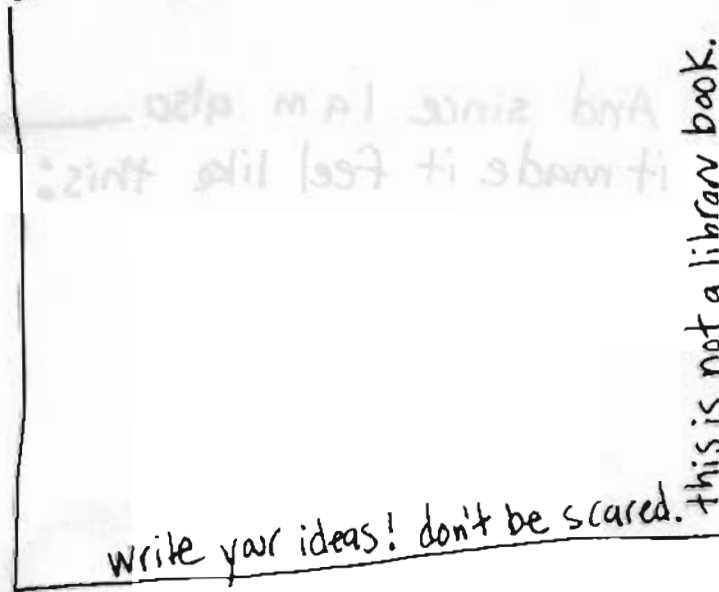 And since I am also
it made it feel like this:
write your ideas! don't be scared.
this is not a library book.